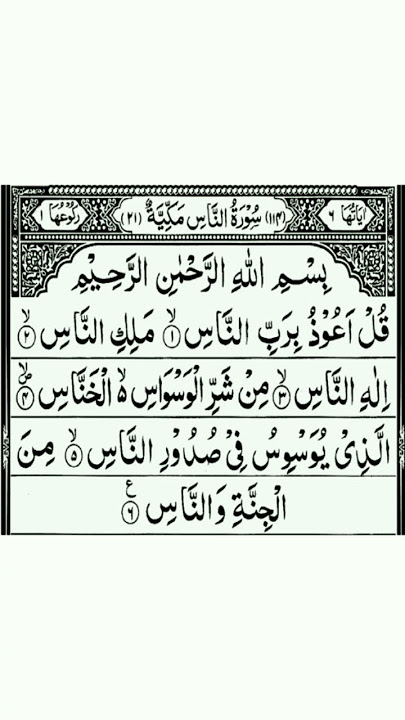 اٰيَاتُهَا ٦ (١١٤) سُوْرَةُ النَّاسِ مَكِّيَّةٌ (٢١) رُكُوْعُهَا ١
بِسْمِ اللهِ الرَّحْمٰنِ الرَّحِيْمِ
قُلْ اَعُوْذُ بِرَبِّ النَّاسِ ۙ﴿١﴾ مَلِكِ النَّاسِ ۙ﴿٢﴾
اِلٰهِ النَّاسِ ۙ﴿٣﴾ مِنْ شَرِّ الْوَسْوَاسِ ۙ۬ الْخَنَّاسِ ۪ۙ﴿٤﴾
الَّذِيْ يُوَسْوِسُ فِيْ صُدُوْرِ النَّاسِ ۙ﴿٥﴾ مِنَ
الْجِنَّةِ وَالنَّاسِ ﴿٦﴾ ع